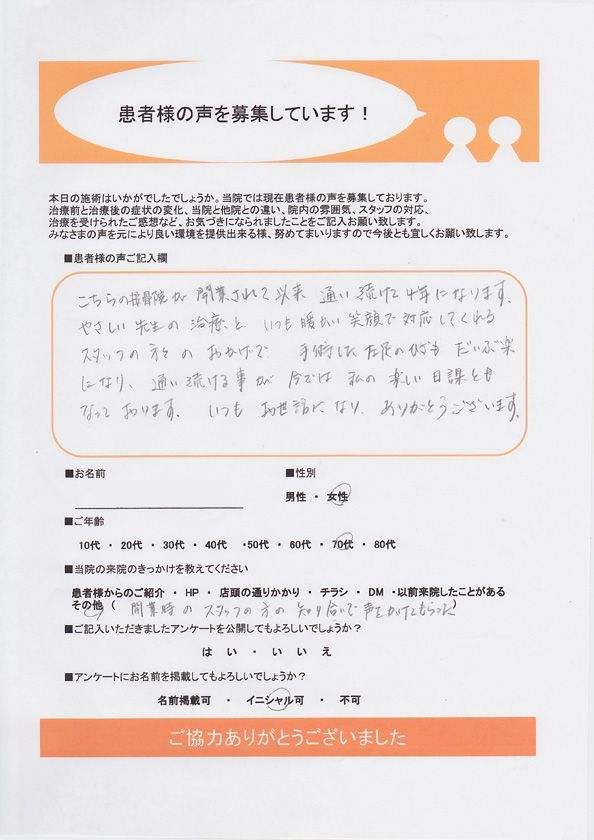 患者様の声を募集しています！
本日の施術はいかがでしたでしょうか。当院では現在患者様の声を募集しております。
治療前と治療後の症状の変化、当院と他院との違い、院内の雰囲気、スタッフの対応、
治療を受けられたご感想など、お気づきになられましたことをご記入お願い致します。
みなさまの声を元により良い環境を提供出来る様、努めてまいりますので今後とも宜しくお願い致します。
■患者様の声ご記入欄
こちらの接骨院が 開業されて以来 通い続けて4年になります。
やさしい先生の治療と いつも暖かい笑顔で対応してくれる
スタッフの方々のおかげで 手術した左足のひざも だいぶ楽
になり、通い続ける事が 今では 私の楽しい日課とも
なっております。 いつも お世話になり、ありがとうございます。
■お名前 ■性別
男性 ・ 女性
■ご年齢
10代 ・ 20代 ・ 30代 ・ 40代 ・50代 ・ 60代 ・ 70代 ・ 80代
■当院の来院のきっかけを教えてください
患者様からのご紹介 ・ HP ・ 店頭の通りかかり ・ チラシ ・ DM ・以前来院したことがある
その他 （ 開業時の スタッフの方の 知り合いで 声をかけてもらった）
■ご記入いただきましたアンケートを公開してもよろしいでしょうか？
は い ・ い い え
■アンケートにお名前を掲載してもよろしいでしょうか？
名前掲載可 ・ イニシャル可 ・ 不可
ご協力ありがとうございました